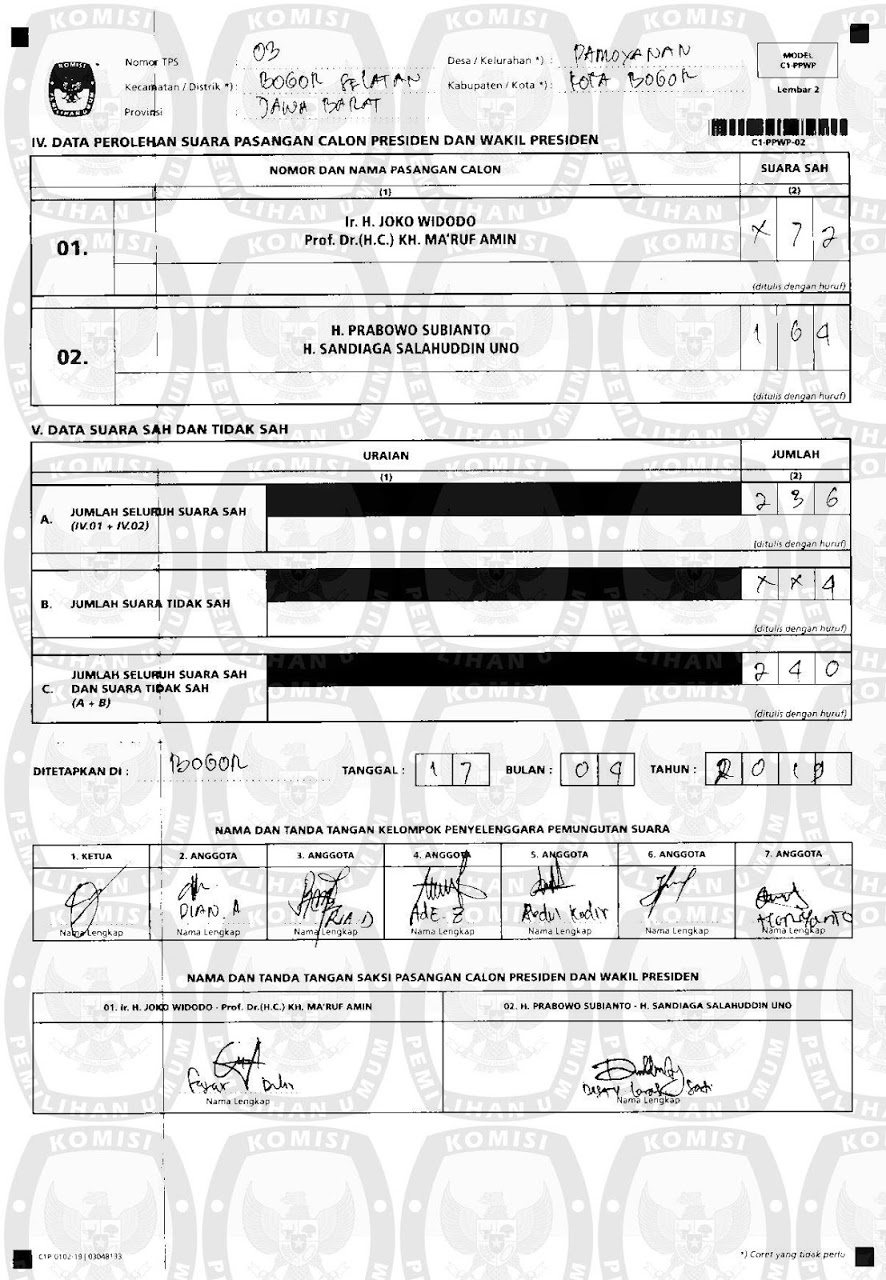 KOMISI
PEMILIHAN UMUM
Nomor TPS : 03
Kecamatan / Distrik *) : BOGOR SELATAN
Provinsi : JAWA BARAT
Desa / Kelurahan *) : PAMOYANAN
Kabupaten / Kota *) : KOTA BOGOR
MODEL
C1-PPWP
Lembar 2
C1-PPWP-02
IV. DATA PEROLEHAN SUARA PASANGAN CALON PRESIDEN DAN WAKIL PRESIDEN
NOMOR DAN NAMA PASANGAN CALON SUARA SAH
(1) (2)
01. Ir. H. JOKO WIDODO
Prof. Dr.(H.C.) KH. MA'RUF AMIN X 7 2
(ditulis dengan huruf)
02. H. PRABOWO SUBIANTO
H. SANDIAGA SALAHUDDIN UNO 1 6 4
(ditulis dengan huruf)
V. DATA SUARA SAH DAN TIDAK SAH
URAIAN JUMLAH
(1) (2)
A. JUMLAH SELURUH SUARA SAH
(IV.01 + IV.02) 2 3 6
(ditulis dengan huruf)
B. JUMLAH SUARA TIDAK SAH X X 4
(ditulis dengan huruf)
C. JUMLAH SELURUH SUARA SAH
DAN SUARA TIDAK SAH
(A + B) 2 4 0
(ditulis dengan huruf)
DITETAPKAN DI : BOGOR TANGGAL : 1 7 BULAN : 0 4 TAHUN : 2 0 1 9
NAMA DAN TANDA TANGAN KELOMPOK PENYELENGGARA PEMUNGUTAN SUARA
1. KETUA 2. ANGGOTA 3. ANGGOTA 4. ANGGOTA 5. ANGGOTA 6. ANGGOTA 7. ANGGOTA
DIAN. A RIA. D ADE. E Abdul Kodir
Nama Lengkap Nama Lengkap Nama Lengkap Nama Lengkap Nama Lengkap Nama Lengkap Nama Lengkap
NAMA DAN TANDA TANGAN SAKSI PASANGAN CALON PRESIDEN DAN WAKIL PRESIDEN
01. Ir. H. JOKO WIDODO - Prof. Dr.(H.C.) KH. MA'RUF AMIN 02. H. PRABOWO SUBIANTO - H. SANDIAGA SALAHUDDIN UNO
Nama Lengkap Nama Lengkap
C1P 0102-19 | 03048133
*) Coret yang tidak perlu